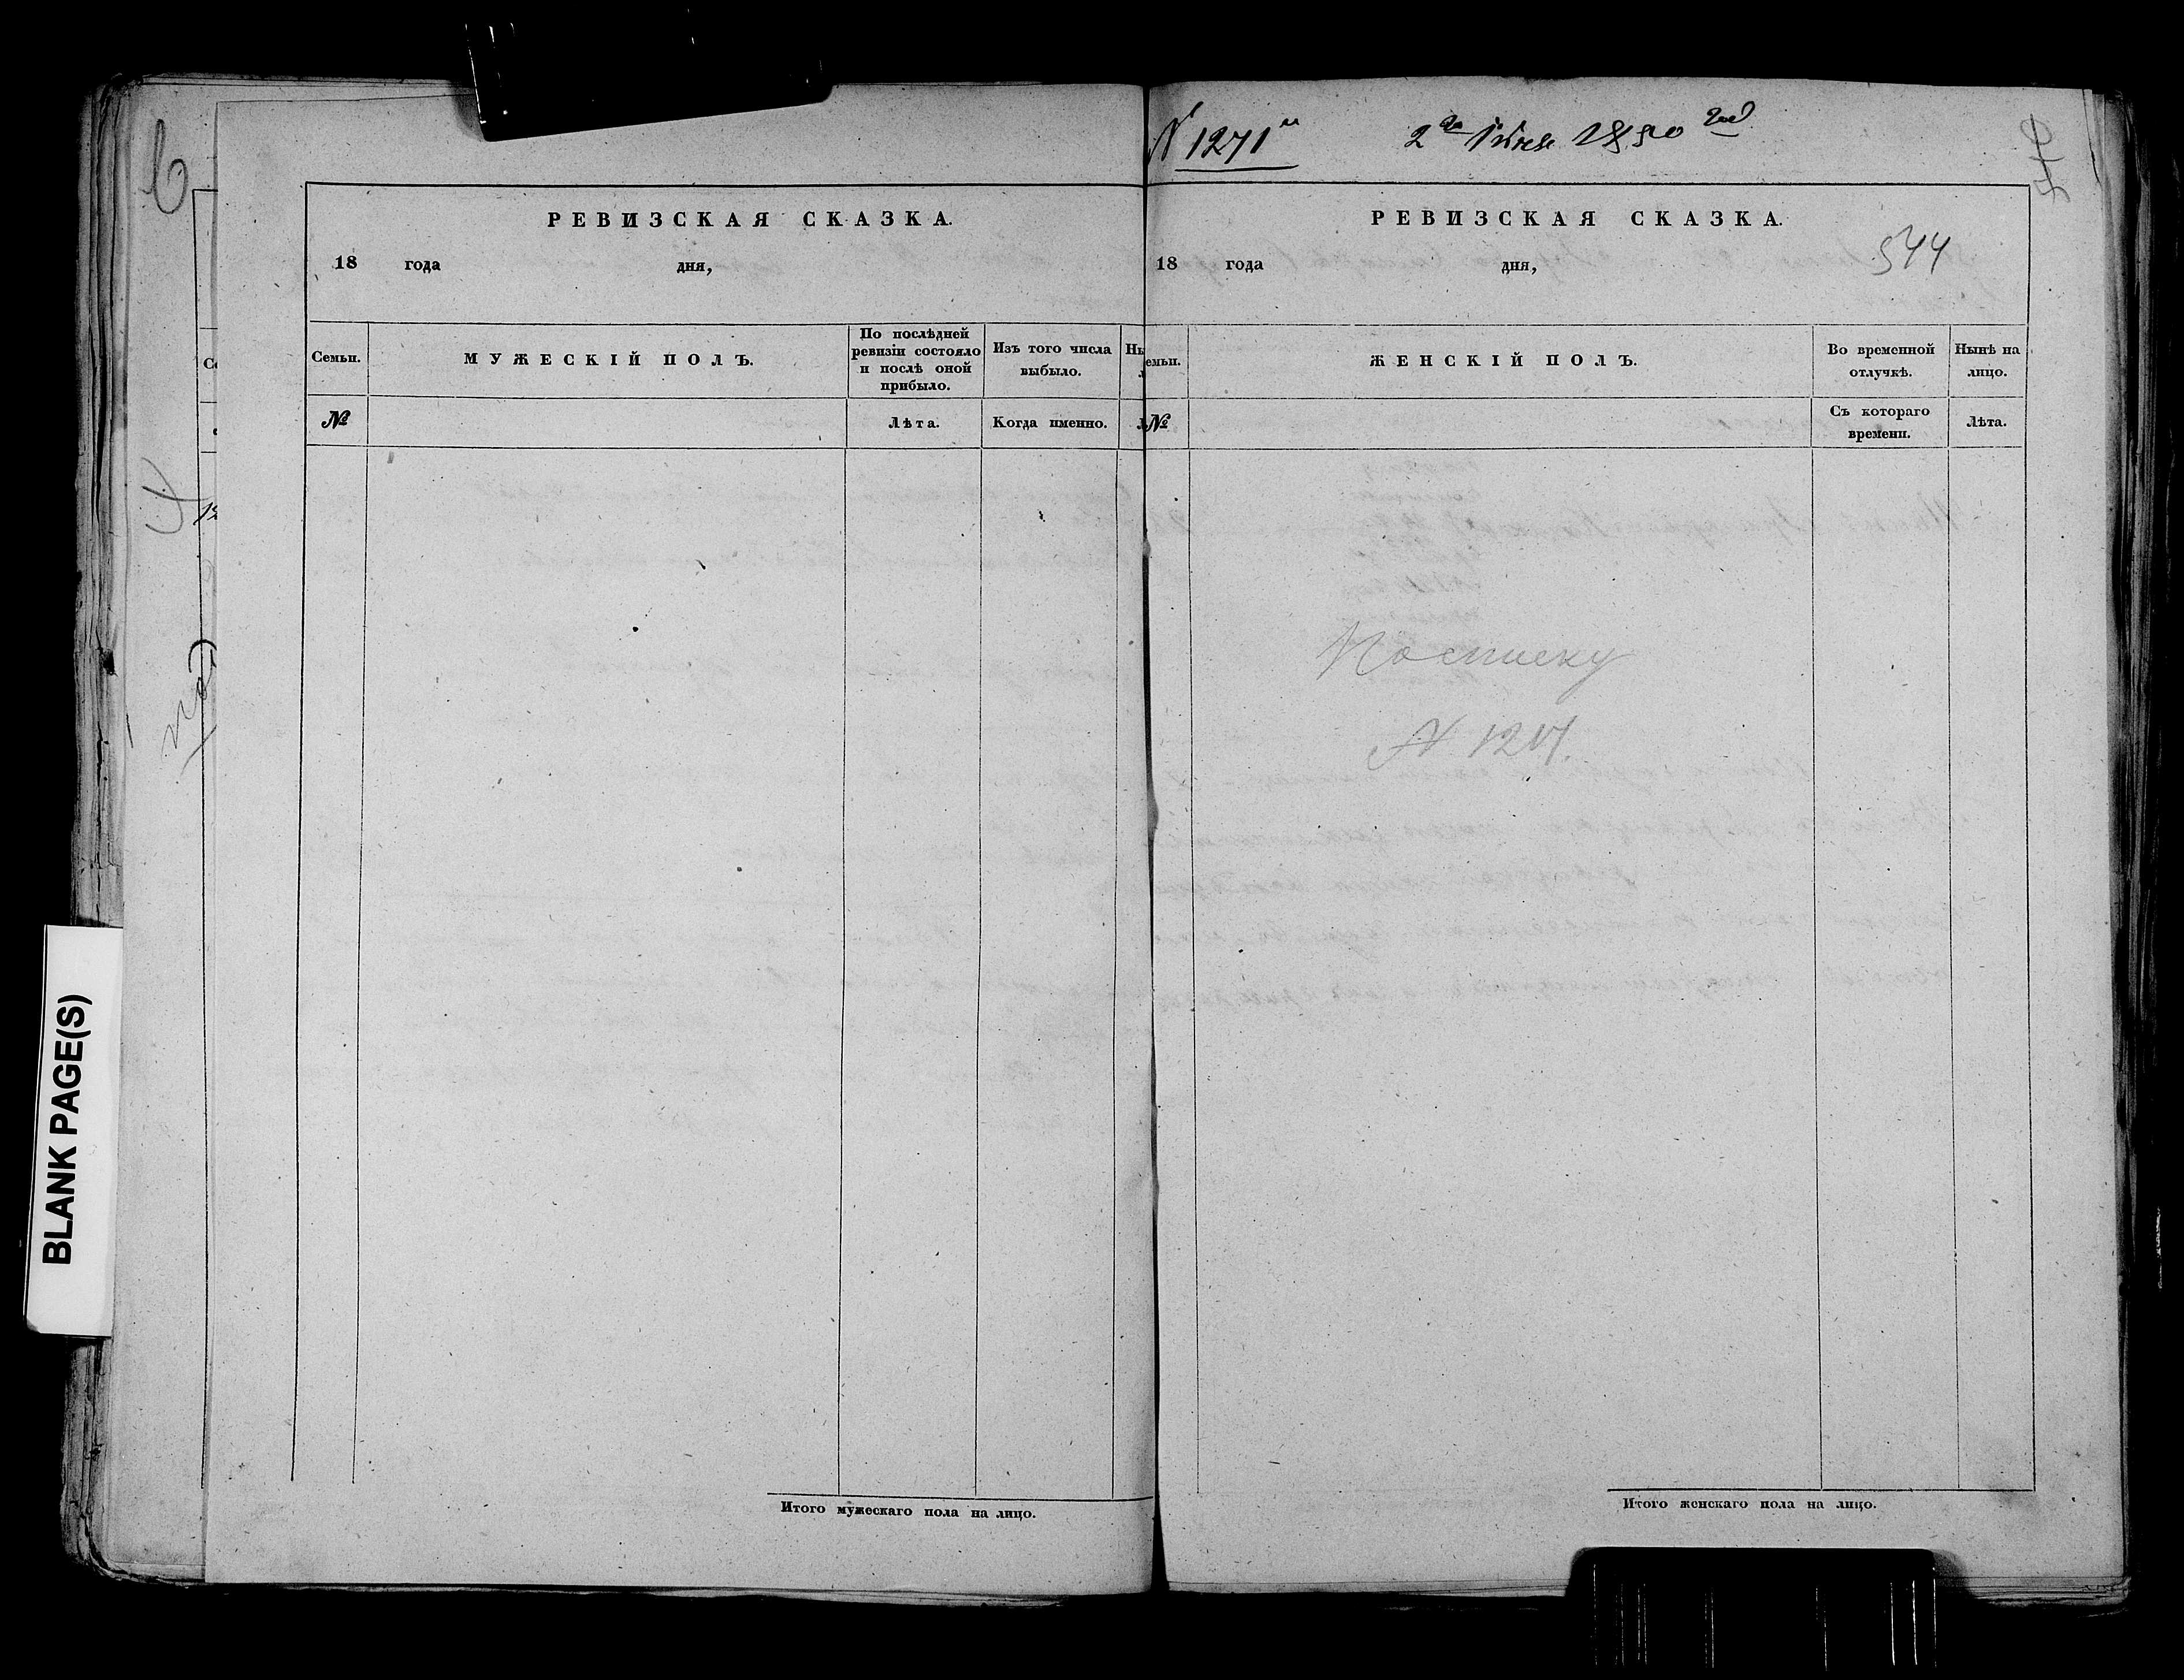 № 1271й
2го Июня 1850 год
РЕВИЗСКАЯ СКАЗКА.
18 года дня,
Семьи.
МУЖЕСКІЙ ПОЛЪ.
По послѣдней ревизіи состояло и послѣ оной прибыло.
Изъ того числа выбыло.
№
Лѣта.
Когда именно.
Итого мужескаго пола на лицо.
РЕВИЗСКАЯ СКАЗКА.
544
18 года дня,
емьи.
ЖЕНСКІЙ ПОЛЪ.
Во временной отлучкѣ.
Нынѣ на лицо.
№
Съ котораго времени.
Лѣта.
По списку
N 1217.
Итого женскаго пола на лицо.
BLANK PAGE(S)